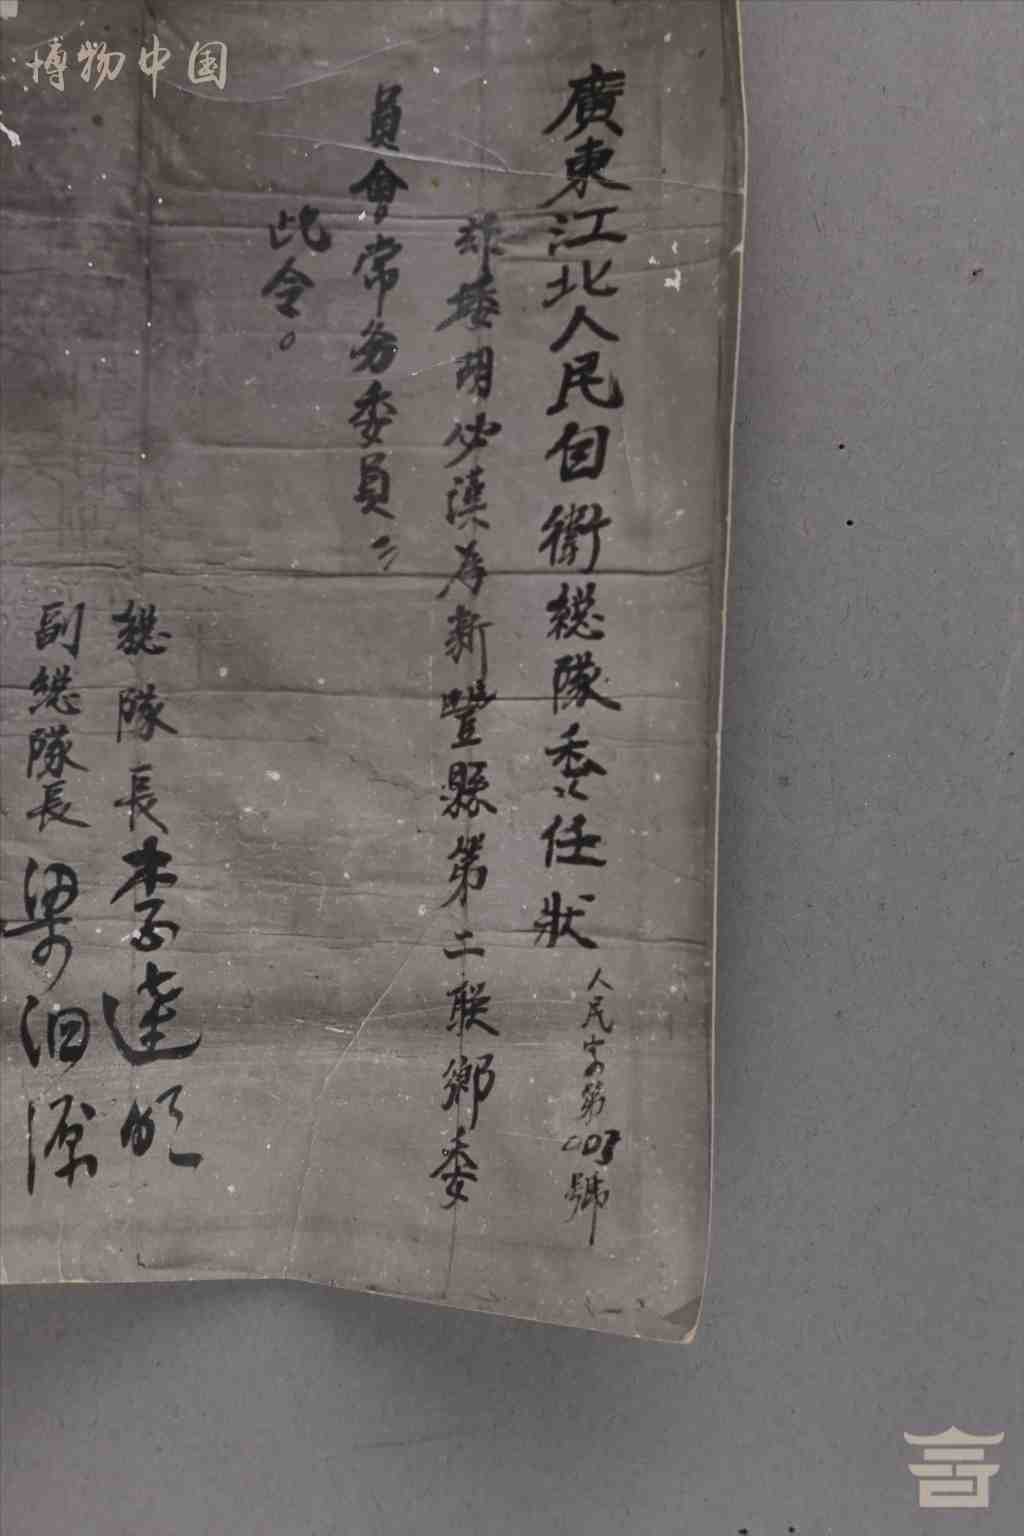 廣東江北人民自衛總隊委任狀
人民字第003號
茲委胡少漢為新豐縣第二聯鄉委
員會常务委員
此令。
總隊長李達明
副總隊長梁泗源
博物中国